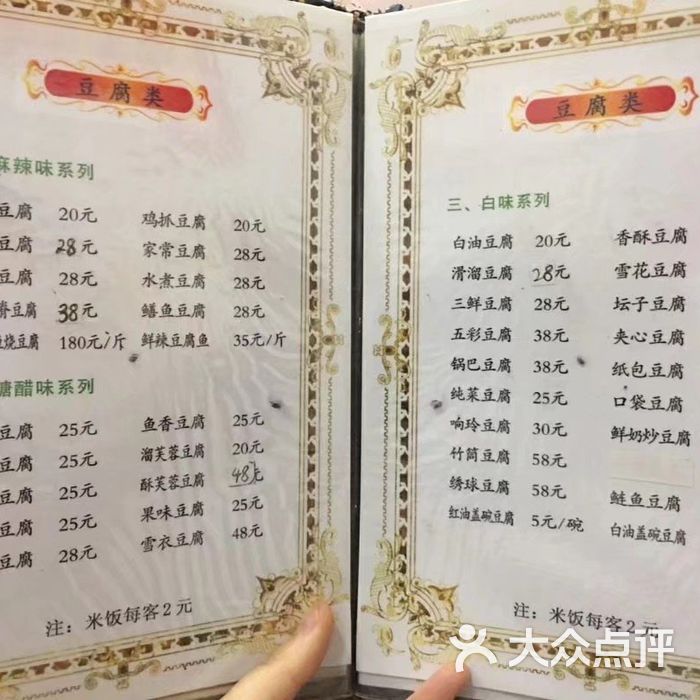 豆腐类
麻辣味系列
豆腐 20元 鸡抓豆腐 20元
豆腐 28元 家常豆腐 28元
豆腐 28元 水煮豆腐 28元
脊豆腐 38元 鳝鱼豆腐 28元
烧豆腐 180元/斤 鲜辣豆腐鱼 35元/斤
糖醋味系列
豆腐 25元 鱼香豆腐 25元
豆腐 25元 溜芙蓉豆腐 20元
豆腐 25元 酥芙蓉豆腐 48元
豆腐 25元 果味豆腐 28元
豆腐 28元 雪衣豆腐 48元
注：米饭每客2元
豆腐类
三、白味系列
白油豆腐 20元 香酥豆腐
滑溜豆腐 28元 雪花豆腐
三鲜豆腐 28元 坛子豆腐
五彩豆腐 38元 夹心豆腐
锅巴豆腐 38元 纸包豆腐
纯菜豆腐 25元 口袋豆腐
响玲豆腐 30元 鲜奶炒豆腐
竹筒豆腐 58元
绣球豆腐 58元 鲢鱼豆腐
红油盖碗豆腐 5元/碗 白油盖碗豆腐
注：米饭每客2元
大众点评